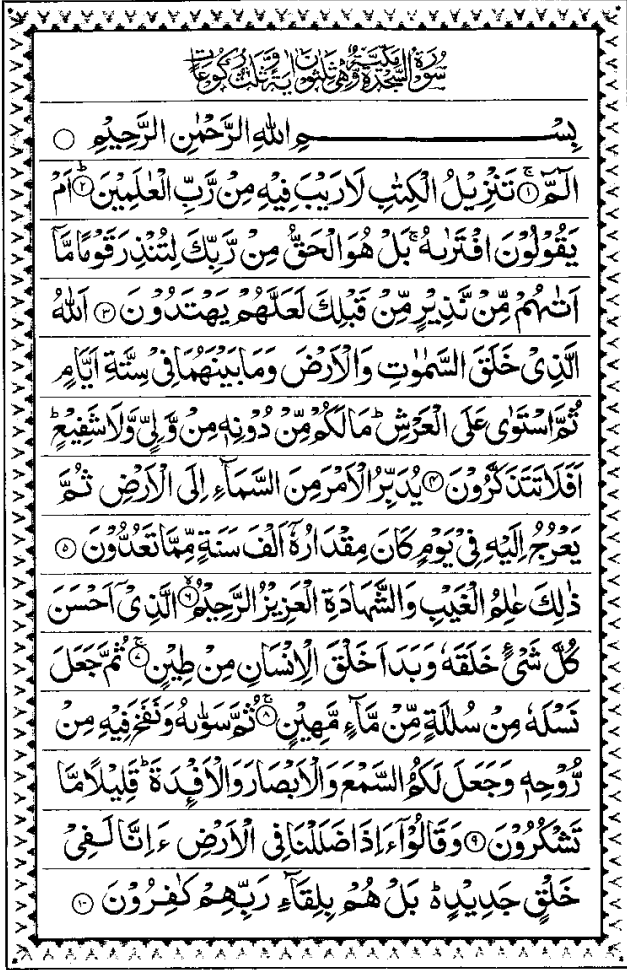 سُوْرَةُ السَّجْدَةِ مَكِّيَّةٌ وَّهِيَ ثَلٰثُوْنَ اٰيَةً وَّثَلٰثُ رُكُوْعَاتٍ
بِسْمِ اللّٰهِ الرَّحْمٰنِ الرَّحِيْمِ ○
الٓمّٓ ۚ﴿۱﴾ تَنْزِيْلُ الْكِتٰبِ لَا رَيْبَ فِيْهِ مِنْ رَّبِّ الْعٰلَمِيْنَ ؕ﴿۲﴾ اَمْ
يَقُوْلُوْنَ افْتَرٰىهُ ۚ بَلْ هُوَ الْحَقُّ مِنْ رَّبِّكَ لِتُنْذِرَ قَوْمًا مَّاۤ
اَتٰىهُمْ مِّنْ نَّذِيْرٍ مِّنْ قَبْلِكَ لَعَلَّهُمْ يَهْتَدُوْنَ ﴿۳﴾ اَللّٰهُ
الَّذِيْ خَلَقَ السَّمٰوٰتِ وَالْاَرْضَ وَمَا بَيْنَهُمَا فِيْ سِتَّةِ اَيَّامٍ
ثُمَّ اسْتَوٰى عَلَى الْعَرْشِ ؕ مَا لَكُمْ مِّنْ دُوْنِهٖ مِنْ وَّلِيٍّ وَّلَا شَفِيْعٍ ؕ
اَفَلَا تَتَذَكَّرُوْنَ ﴿۴﴾ يُدَبِّرُ الْاَمْرَ مِنَ السَّمَآءِ اِلَى الْاَرْضِ ثُمَّ
يَعْرُجُ اِلَيْهِ فِيْ يَوْمٍ كَانَ مِقْدَارُهٗۤ اَلْفَ سَنَةٍ مِّمَّا تَعُدُّوْنَ ﴿۵﴾
ذٰلِكَ عٰلِمُ الْغَيْبِ وَالشَّهَادَةِ الْعَزِيْزُ الرَّحِيْمُ ۙ﴿۶﴾ الَّذِيْۤ اَحْسَنَ
كُلَّ شَيْءٍ خَلَقَهٗ وَبَدَاَ خَلْقَ الْاِنْسَانِ مِنْ طِيْنٍ ۚ﴿۷﴾ ثُمَّ جَعَلَ
نَسْلَهٗ مِنْ سُلٰلَةٍ مِّنْ مَّآءٍ مَّهِيْنٍ ۚ﴿۸﴾ ثُمَّ سَوّٰىهُ وَنَفَخَ فِيْهِ مِنْ
رُّوْحِهٖ وَجَعَلَ لَكُمُ السَّمْعَ وَالْاَبْصَارَ وَالْاَفْـِٕدَةَ ؕ قَلِيْلًا مَّا
تَشْكُرُوْنَ ﴿۹﴾ وَقَالُوْۤا ءَاِذَا ضَلَلْنَا فِي الْاَرْضِ ءَاِنَّا لَفِيْ
خَلْقٍ جَدِيْدٍ ؕ۬ بَلْ هُمْ بِلِقَآئِ رَبِّهِمْ كٰفِرُوْنَ ﴿۱۰﴾